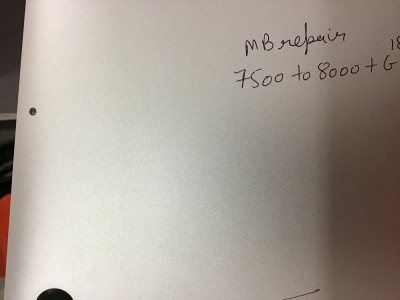 MB repair
18
7500 to 8000 + G